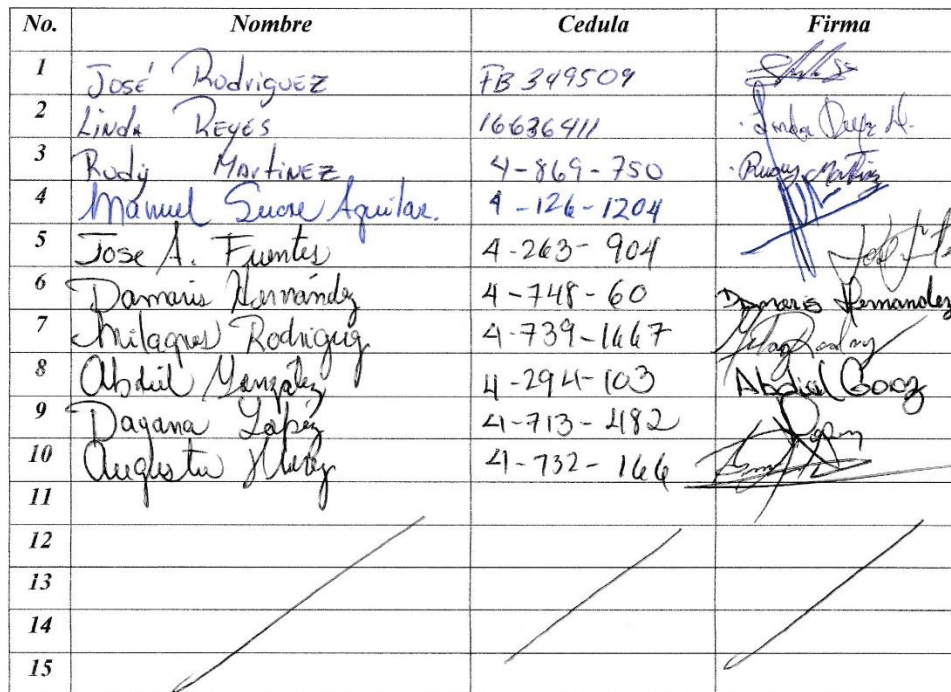 No. Nombre Cedula Firma
1 José Rodriguez FB 349509
2 Linda Reyes 16636411 Linda Reyes H.
3 Rudy Martinez 4-869-750 Rudy Martinez
4 Manuel Sucre Aguilar. 4-126-1204
5 Jose A. Fuentes 4-263-904
6 Damaris Hernández 4-748-60 Damaris Hernandez
7 Milagros Rodriguez 4-739-1667
8 Abdiel González 4-294-103 Abdiel Gonz
9 Dayana López 4-713-482
10 4-732-166
11
12
13
14
15